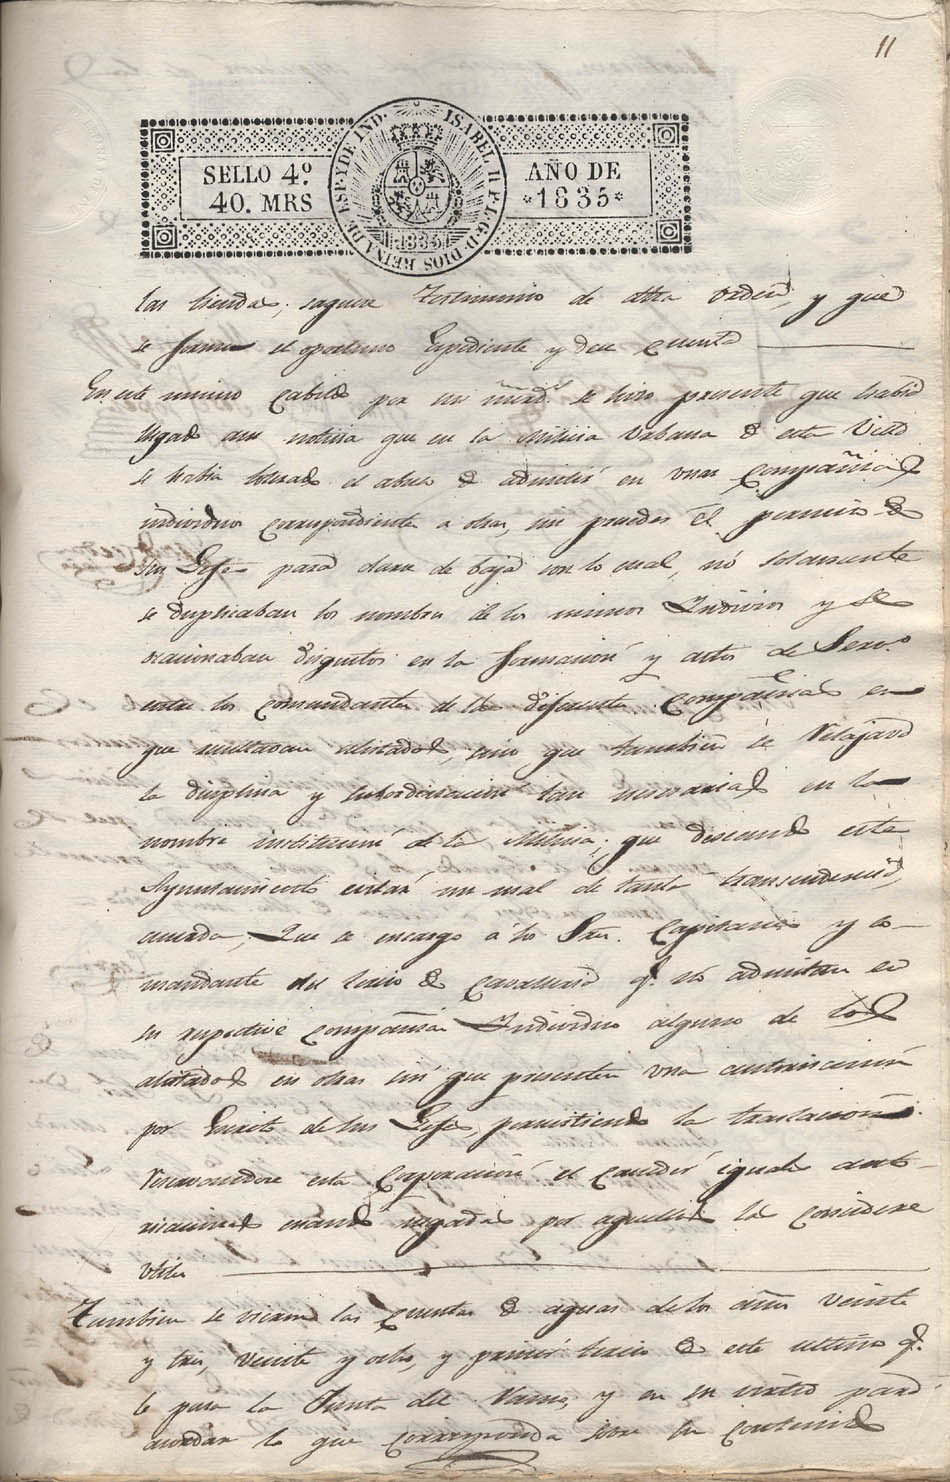 11
SELLO 4º
40. MRS
ISABEL II P. L. G. D. DIOS REINA DE ESP. Y DE IND.
1835
AÑO DE
1835
las tiendas; saquese testimonio de dtha orden, y que
se forme el oportuno Espediente y dese cuenta
En este mismo Cabildo por un se hizo presente que habia
llegado a su noticia que en la Milicia Urbana de esta Villa
se habia el abuso de admitir en unas Compañias
individuos correspondientes a otras, sin preceder el permiso de
sus Gefes para darse de baja con lo cual, nó solamente
se duplicaban los nombres de los mismos Individuos y se
ocasionaban disgustos en la formacion y actos de Servº
entre los Comandantes de las diferentes Compañias en
que resultavan alistados, sino que tambien se relajava
la disciplina y subordinacion tan necesarias en la
institucion de la Milicia; que deseando este
Ayuntamiento evitar un mal de tanta transendencia,
acuerda, Que se encargue á los Sres. Capitanes y Co-
mandante del tercio de Cavalleria q. no admitan en
su respective Compañia Individuo alguno de los
alistados en otras sin que presenten una autorisacion
por Escrito de sus Gefes, permitiendo la traslacion
reservandose esta Corporacion el conceder iguales auto-
risaciones cuando negadas por aquellos las considere
utiles
Tambien se vieron las cuentas de aguas de los años veinte
y tres, veinte y ocho, y primer tercio de este ultimo q.
le pasa la Junta del Ramo, y en su virtud para
acordar lo que corresponda sobre su contenido